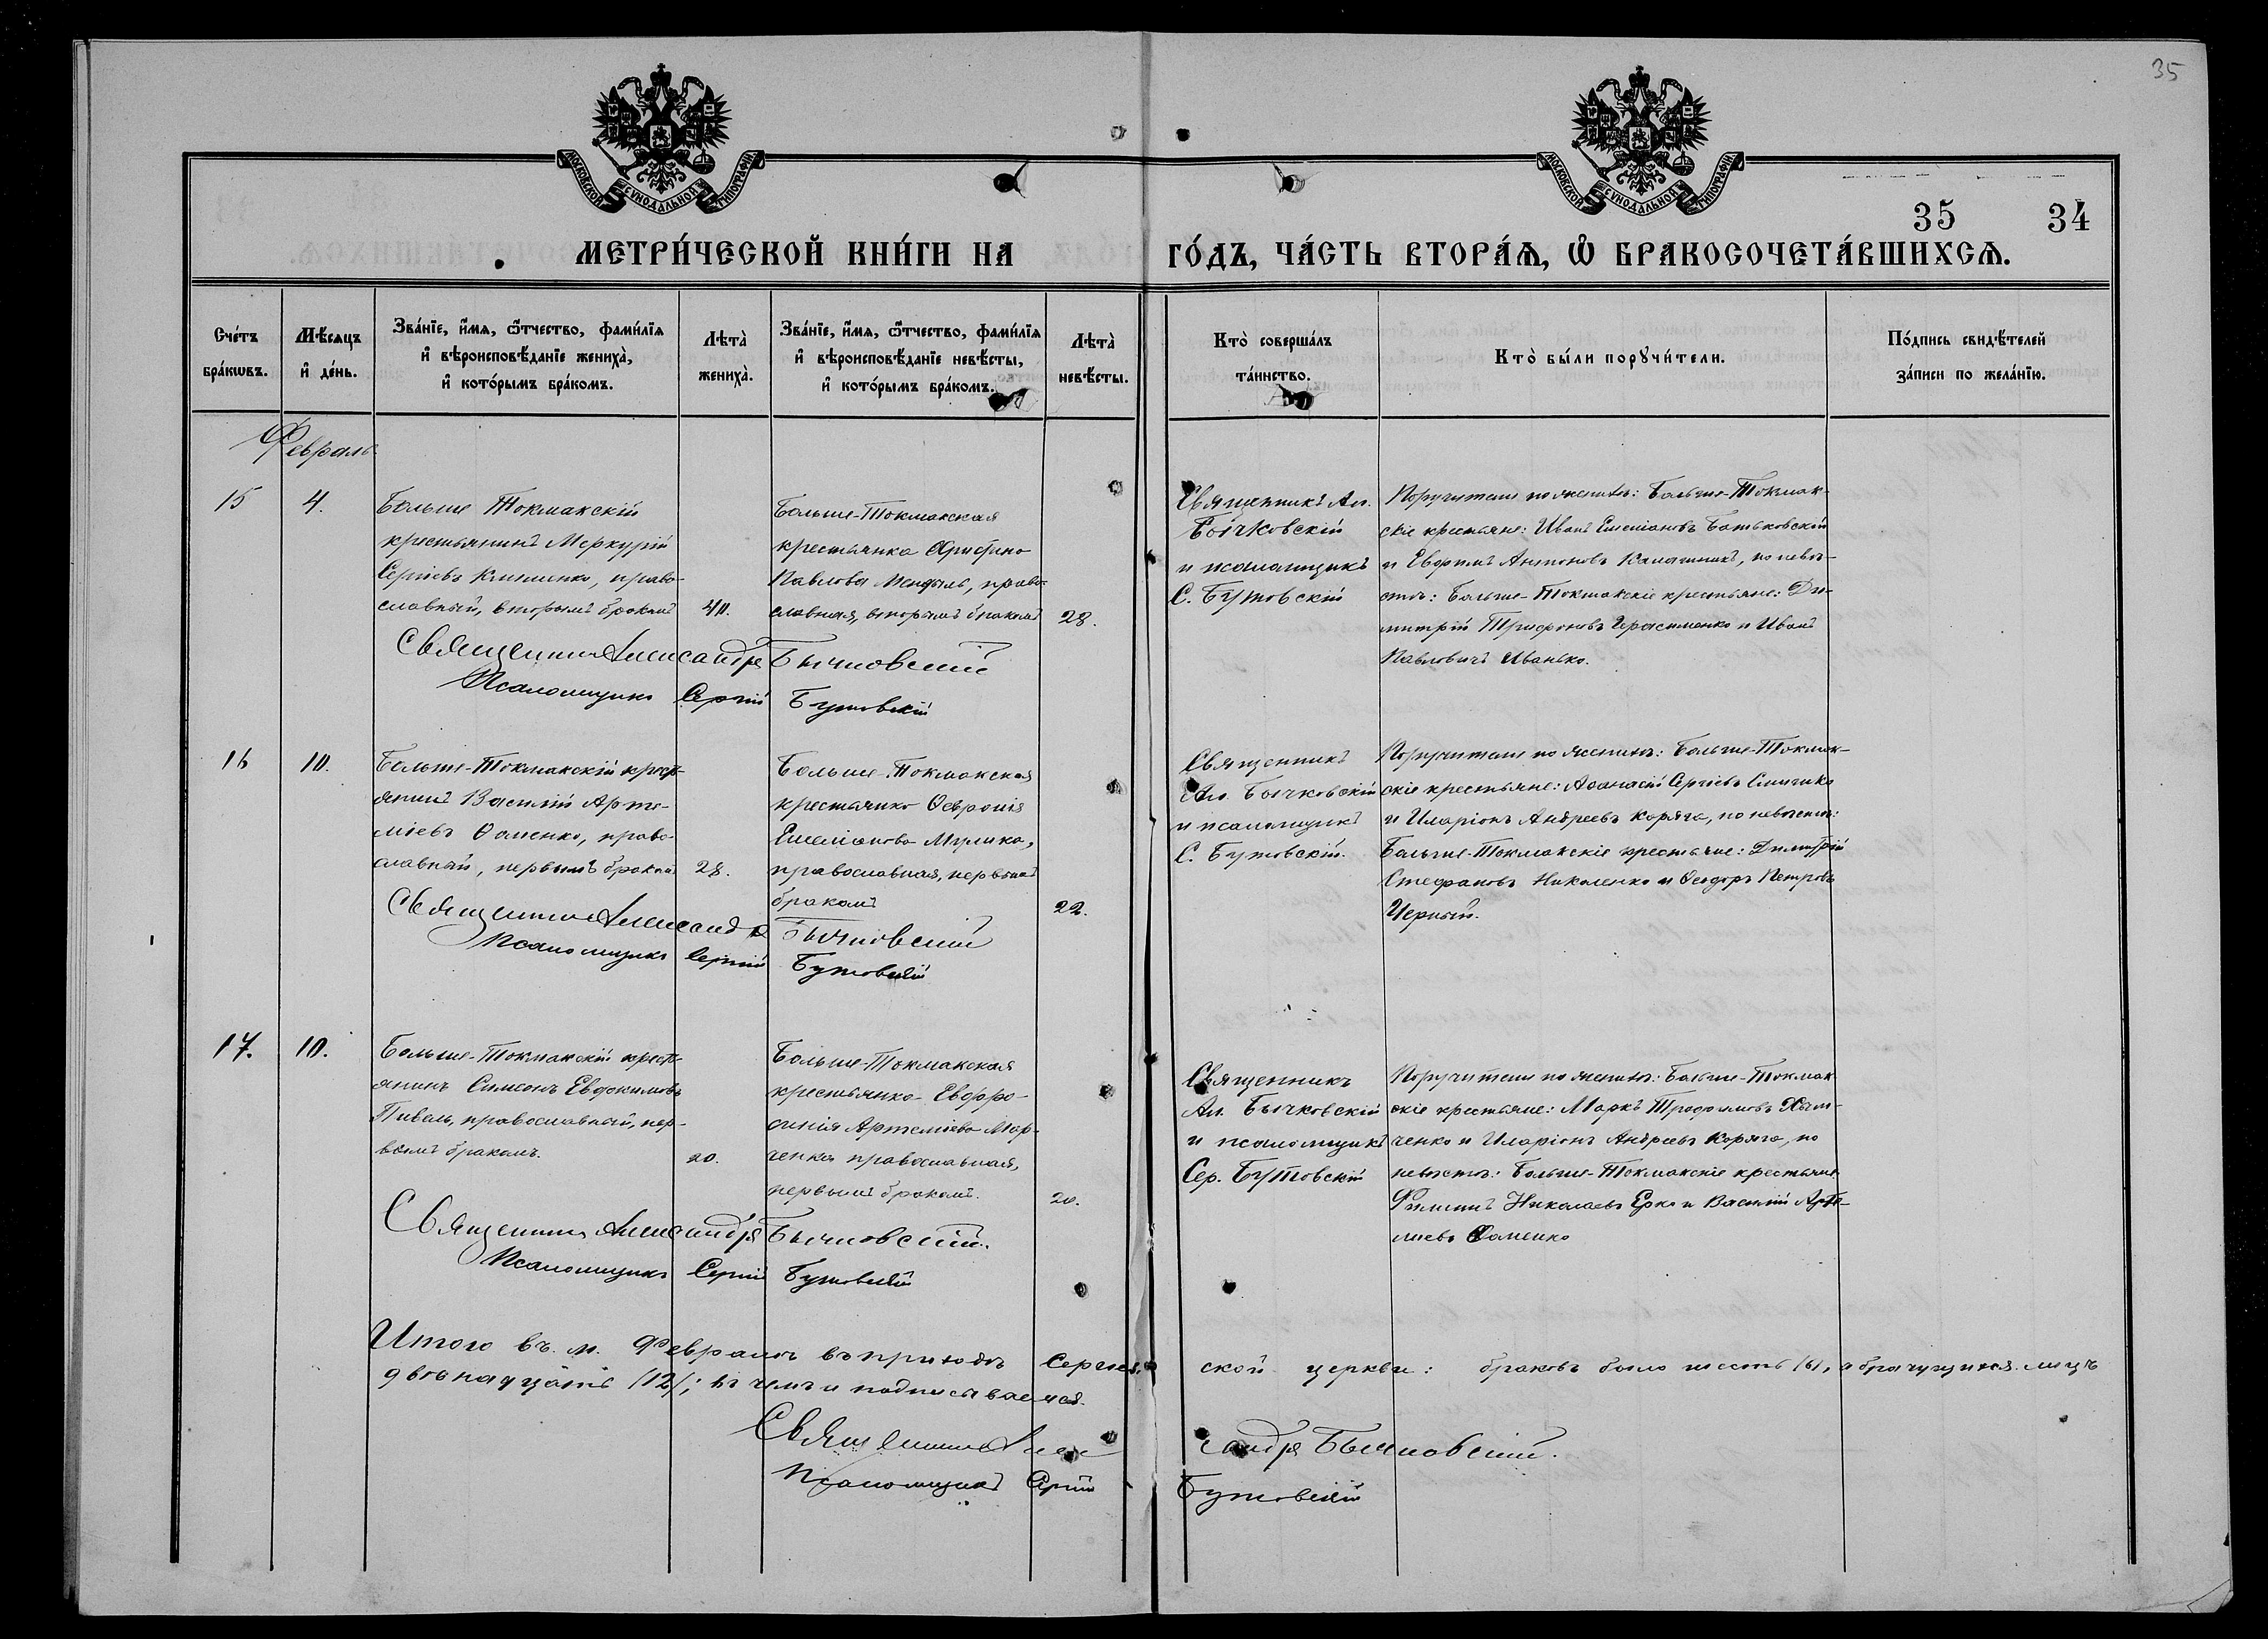 35
МОСКОВСКОЙ СѴНОДАЛЬНОЙ ТИПОГРАФІИ
МОСКОВСКОЙ СѴНОДАЛЬНОЙ ТИПОГРАФІИ
35 34
МЕТРИ́ЧЕСКОЙ КНИ́ГИ НА ГО́ДЪ, ЧА́СТЬ ВТОРА́Ѧ, Ѽ БРАКОСОЧЕТА́ВШИХСѦ.
Сче́тъ
бра́кѡвъ.
Мѣ́сяцъ
и҆ де́нь.
Зва́нїе, и҆́мѧ, ѻ҆́тчество, фами́лїѧ
и҆ вѣроисповѣ́данїе жениха̀,
и҆ кото́рымъ бра́комъ.
Лѣта̀
жениха̀.
Зва́нїе, и҆́мѧ, ѻ҆́тчество, фами́лїѧ
и҆ вѣроисповѣ́данїе невѣ́сты,
и҆ кото́рымъ бра́комъ.
Лѣта̀
невѣ́сты.
Кто̀ соверша́лъ
та́инство.
Кто̀ бы́ли порꙋчи́тели.
По́дпись свидѣ́телей
за́писи по жела́нїю.
Февраль
15
4.
Больше Токмакскій
крестьянинъ Меркурій
Сергіевъ Клименко, право-
славный, вторымъ бракомъ
40.
Больше-Токмакская
крестьянка Христина
Павлова, право-
славная, вторымъ бракомъ
28.
Священникъ Ал.
Бычковскій
и псаломщикъ
С. Бутовскій
Поручители по женихѣ: Больше-Токмак-
скіе крестьяне: Иванъ Емеліановъ Батьковскій
и Евфимъ Антоновъ Калашникъ, по невѣ-
стѣ: Больше-Токмакскіе крестьяне: Ди-
митрій Трифоновъ Герасименко и Иванъ
Павловичъ Иванько.
Священникъ Александръ Бычковскій
Псаломщикъ Сергій Бутовскій
16
10.
Больше-Токмакскій крест-
янинъ Василій Арте-
міевъ Ѳоменко, право-
славный, первымъ бракомъ
28.
Больше-Токмакская
крестьянка Ѳевронія
Емеліанова,
православная, первымъ
бракомъ
22.
Священникъ
Ал. Бычковскій
и псаломщикъ
С. Бутовскій.
Поручители по женихѣ: Больше-Токмак-
скіе крестьяне: Аѳанасій Сергіевъ
и Иларіонъ Андреевъ Коряга, по невѣстѣ:
Больше-Токмакскіе крестьяне: Димитрій
Стефановъ Николенко и Ѳеодоръ Петровъ
Черный.
Священникъ Александръ Бычковскій
Псаломщикъ Сергій Бутовскій
17.
10.
Больше-Токмакскій крест-
янинъ Симеонъ Евдокимовъ
Пивель, православный, пер-
вымъ бракомъ.
20.
Больше-Токмакская
крестьянка Евфро-
синія Артеміева Мар-
ченко православная,
первымъ бракомъ.
20.
Священникъ
Ал. Бычковскій
и псаломщикъ
Сер. Бутовскій
Поручители по женихѣ: Больше-Токмак
скіе крестьяне: Маркъ Трофимовъ
ченко и Иларіонъ Андреевъ Коряга, по
невѣстѣ: Больше-Токмакскіе крестьяне
Филиппъ Николаевъ Ерко и Василій Арте-
міевъ Ѳоменко
Священникъ Александръ Бычковскій.
Псаломщикъ Сергій Бутовскій
Итого въ м. Февралѣ въ приходѣ Сергіев- ской церкви: браковъ было шесть /6/, а брачущихся лицъ
двѣнадцать /12/; въ чемъ и подписываемся.
Священникъ Александръ Бычковскій.
Псаломщикъ Сергій Бутовскій